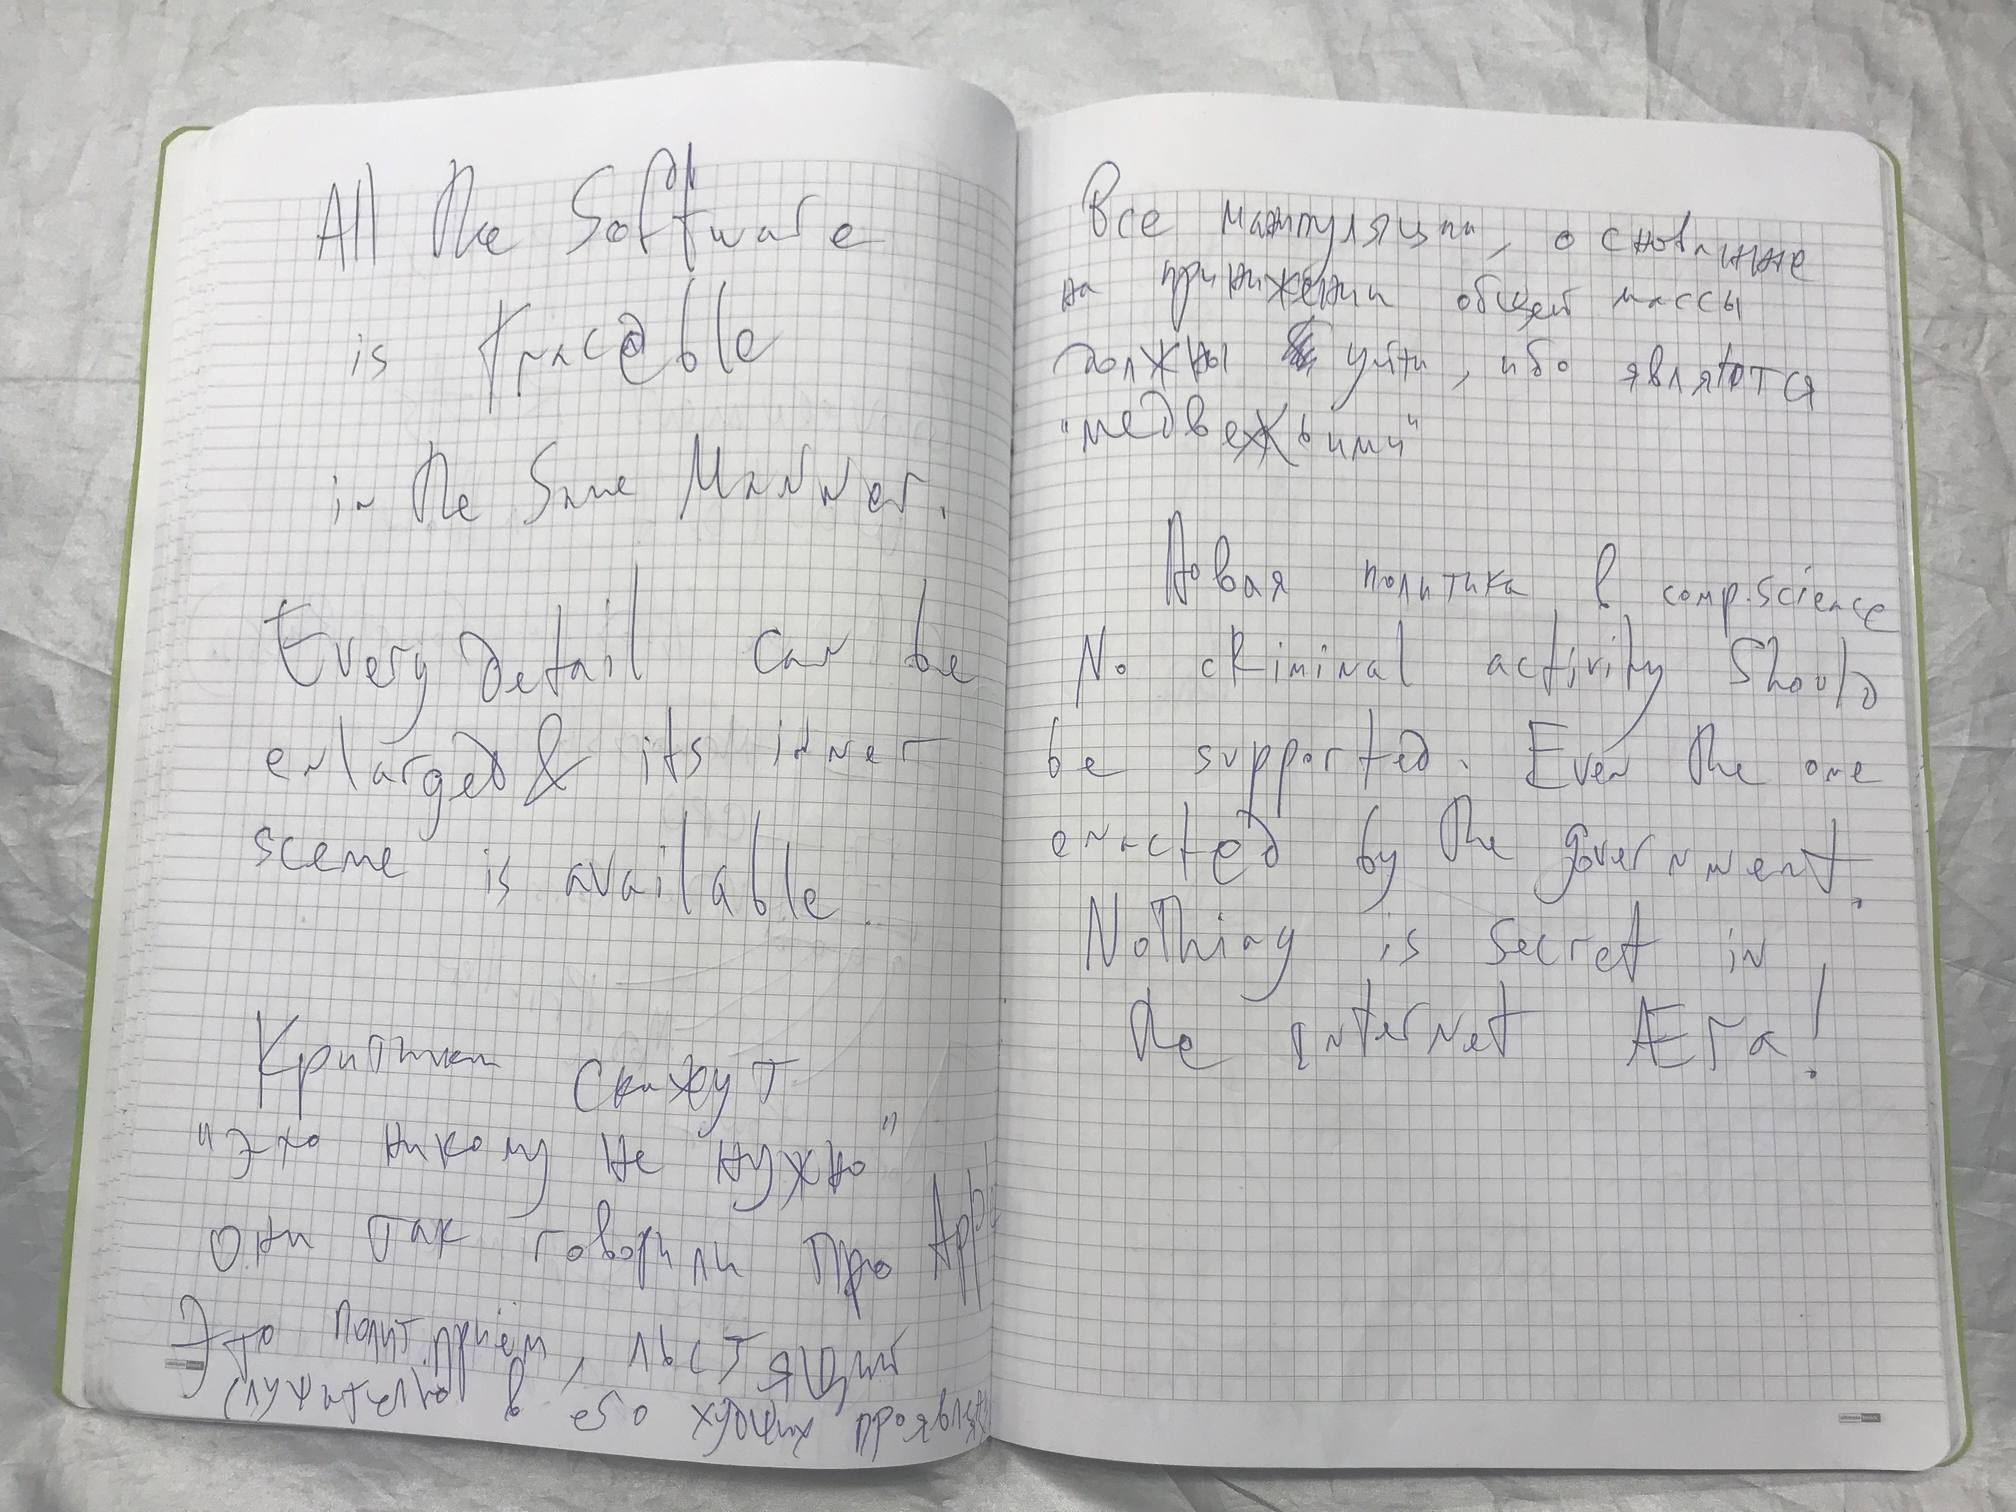 All the Software
is tracable
in the Same Manner.
Every Detail can be
enlarged & its inner
scene is available.
Критики скажут
"Это никому не нужно"
они так говорили про Apple
Это полит.приём, льстящий
служителю в его худших проявл
Все манипуляции, основанные
на принижении общей массы
должны уйти, ибо являются
"медвежьими"
Новая политика в comp.science
No cRiminal activity Should
be supported. Even the one
enacted by the government.
Nothing is secret in
the internet Æra!